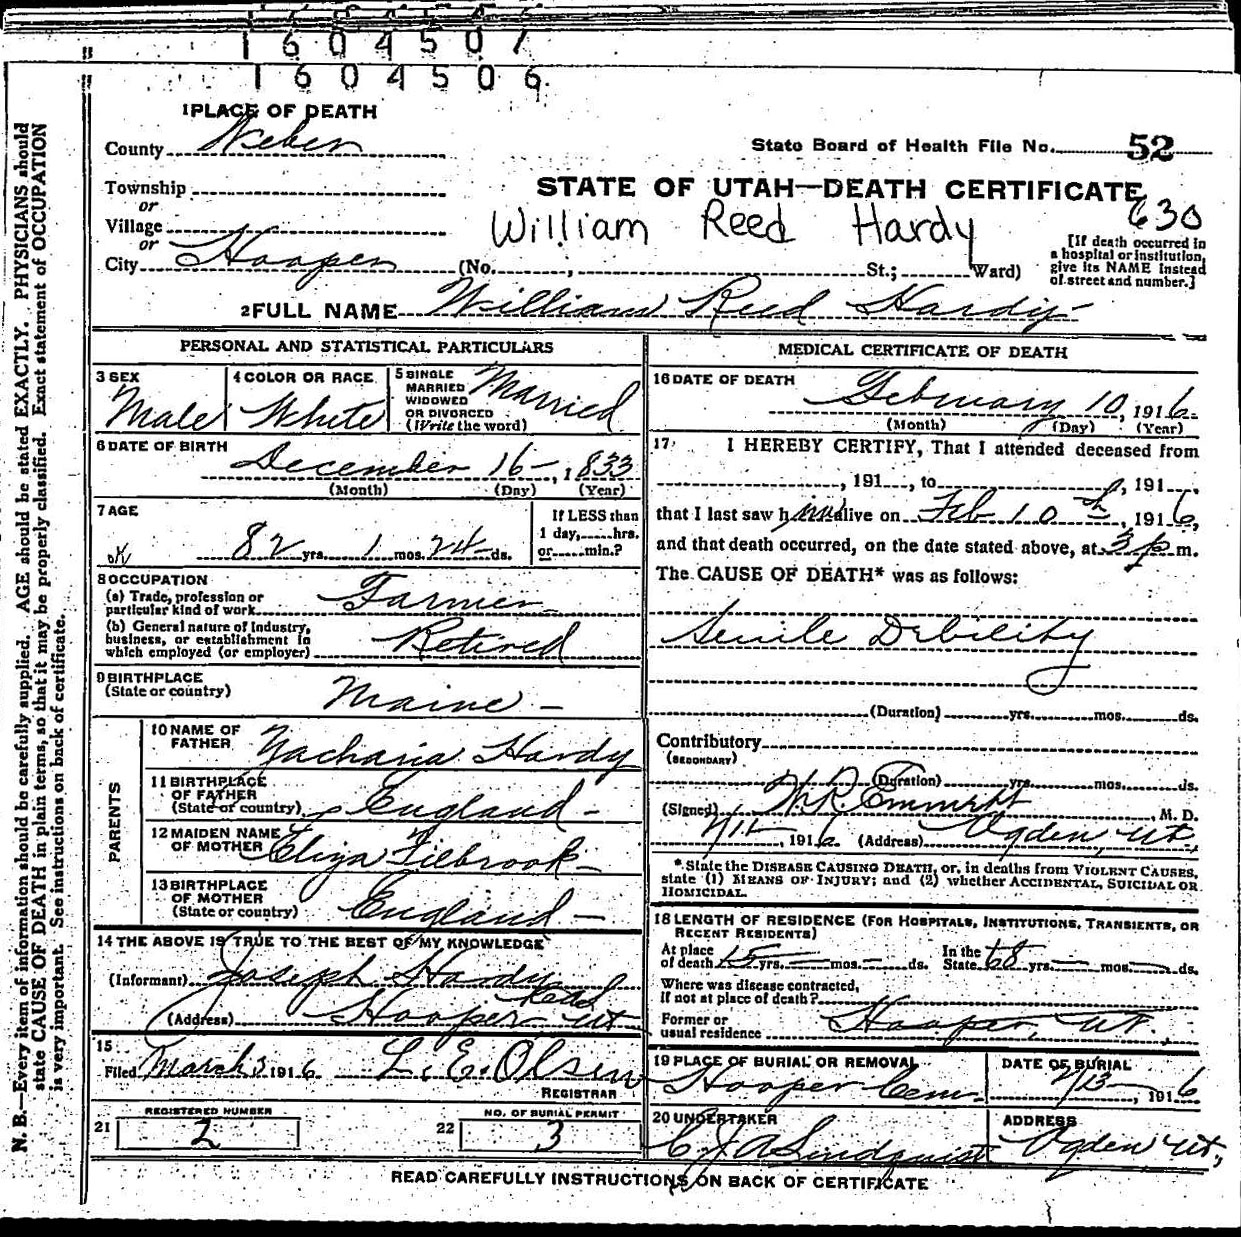 1604507
1604506
1 PLACE OF DEATH
County Weber
State Board of Health File No. 52
Township
or
STATE OF UTAH—DEATH CERTIFICATE
630
Village
or
William Reed Hardy
City Hooper (No. , St.; Ward)
[If death occurred in
a hospital or institution,
give its NAME instead
of street and number.]
2 FULL NAME William Reed Hardy
PERSONAL AND STATISTICAL PARTICULARS
3 SEX
Male
4 COLOR OR RACE
White
5 SINGLE
MARRIED
WIDOWED
OR DIVORCED
(Write the word)
Married
6 DATE OF BIRTH
December 16-, 1833
(Month) (Day) (Year)
7 AGE
82 yrs. 1 mos. 24 ds.
If LESS than
1 day, hrs.
or min.?
8 OCCUPATION
(a) Trade, profession or
particular kind of work Farmer
(b) General nature of Industry,
business, or establishment in
which employed (or employer) Retired
9 BIRTHPLACE
(State or country) Maine -
PARENTS
10 NAME OF
FATHER Zacharia Hardy
11 BIRTHPLACE
OF FATHER
(State or country) England -
12 MAIDEN NAME
OF MOTHER Eliza Filbrook -
13 BIRTHPLACE
OF MOTHER
(State or country) England -
14 THE ABOVE IS TRUE TO THE BEST OF MY KNOWLEDGE
(Informant) Joseph Hardy
(Address) Hooper Ut
15
Filed March 3 1916 L. E. Olsen
REGISTRAR
REGISTERED NUMBER
21 2
NO. OF BURIAL PERMIT
22 3
MEDICAL CERTIFICATE OF DEATH
16 DATE OF DEATH
February 10, 1916
(Month) (Day) (Year)
17 I HEREBY CERTIFY, That I attended deceased from
, 191 , to , 191 ,
that I last saw him alive on Feb 10th, 1916,
and that death occurred, on the date stated above, at 3 p m.
The CAUSE OF DEATH* was as follows:
Senile Debility
(Duration) yrs. mos. ds.
Contributory
(SECONDARY)
(Duration) yrs. mos. ds.
(Signed) Emmett, M. D.
, 1916. (Address) Ogden, Ut.
*State the DISEASE CAUSING DEATH, or, in deaths from VIOLENT CAUSES,
state (1) MEANS OF INJURY; and (2) whether ACCIDENTAL, SUICIDAL OR
HOMICIDAL.
18 LENGTH OF RESIDENCE (FOR HOSPITALS, INSTITUTIONS, TRANSIENTS, OR
RECENT RESIDENTS)
At place
of death 15 yrs. — mos. - ds.
In the
State 68 yrs. — mos. — ds.
Where was disease contracted,
if not at place of death?
Former or
usual residence Hooper, Ut.
19 PLACE OF BURIAL OR REMOVAL
Hooper Cem.
DATE OF BURIAL
2/13, 1916
20 UNDERTAKER
C J A Lindquist
ADDRESS
Ogden Ut,
READ CAREFULLY INSTRUCTIONS ON BACK OF CERTIFICATE
N. B.—Every item of information should be carefully supplied. AGE should be stated EXACTLY. PHYSICIANS should
state CAUSE OF DEATH in plain terms, so that it may be properly classified. Exact statement of OCCUPATION
is very important. See instructions on back of certificate.